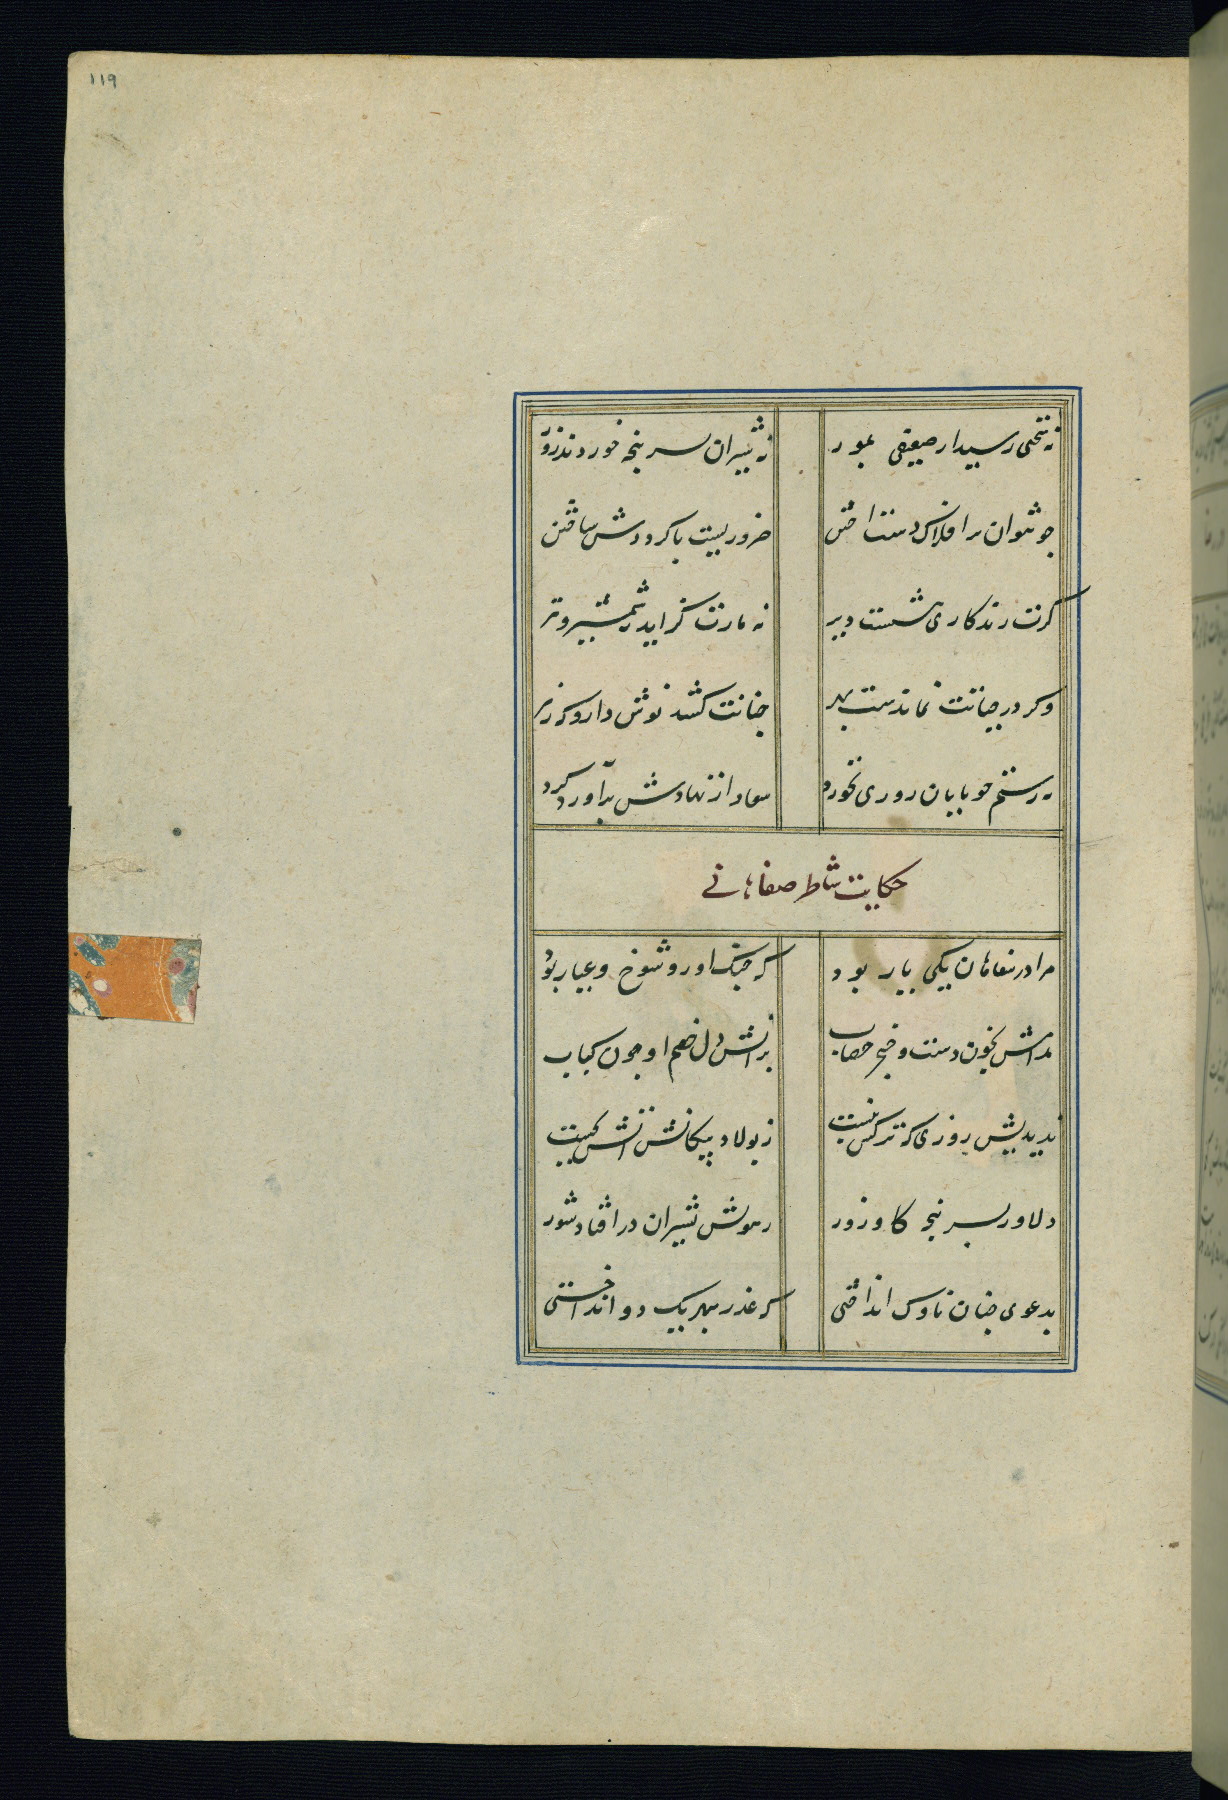 ۱۱۹
نه سختی رسید از ضعیفی بمور نه شیران بسرپنجه خوردند زور
چو نتوان بر افلاک دست آختن ضرور یست با گردشش ساختن
گرت زندگانی نبشتست دیر نه مارت گزاید نه شمشیر و تیر
وگر در حیاتت نماندست بهر چنانت کشد نوش دارو که زهر
نه رستم چو پایان روزی بخورد شغاد از نهادش برآورد گرد
حکایت شاطر صفاهانی
مرا در صفاهان یکی یار بود که جنگ آور و شوخ و عیار بود
مدامش بخون دست و خنجر خضاب بر آتش دل خصم او چون کباب
ندیدیش روزی که ترکش نبست ز پولاد پیکانش آتش نجست
دلاور بسرپنجه گاو زور ز هولش بشیران در افتاد شور
بدعوی چنان ناوک انداختی که عذرا بهر یک دو انداختی